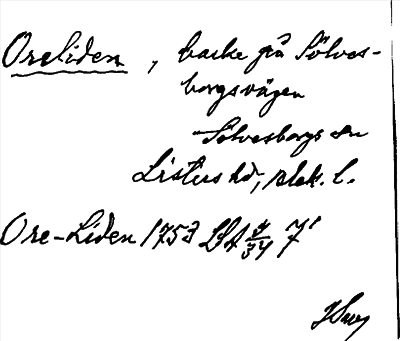 Oreliden, backe på Sölves-
borgsvägen
Sölvesborgs sn
Listers hd, Blek. l.
Ore-Liden 1753 LSA 7'